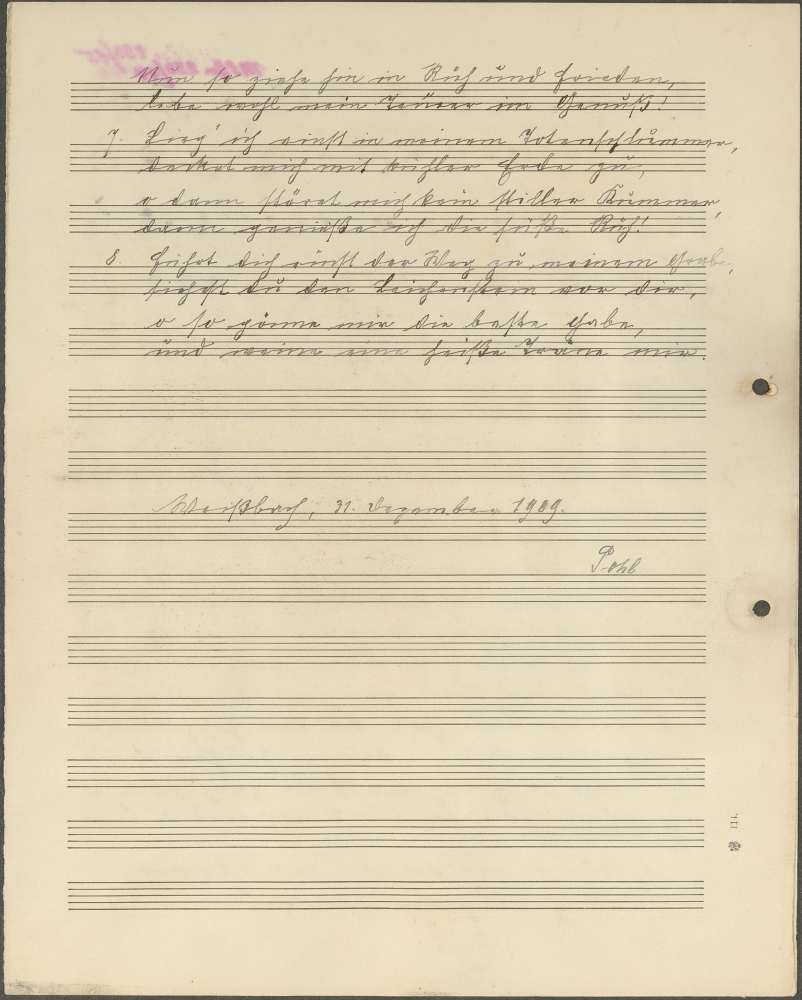 Nun so ziehe hin in Ruh und Frieden,
lebe wohl mein Teurer im Genuß!
7. Lieg' ich einst in meinem Totenschlummer,
decket mich mit kühler Erde zu,
o dann störet mich kein stiller Kummer,
dann genieße ich die süße Ruh!
8. Führt dich einst der Weg zu meinem Grabe,
siehest du den Leichenstein vor dir,
o so gönne mir die beste Gabe,
und weine eine heiße Träne mir.
Weißbach, 31. Dezember 1909.
Pohl
111.